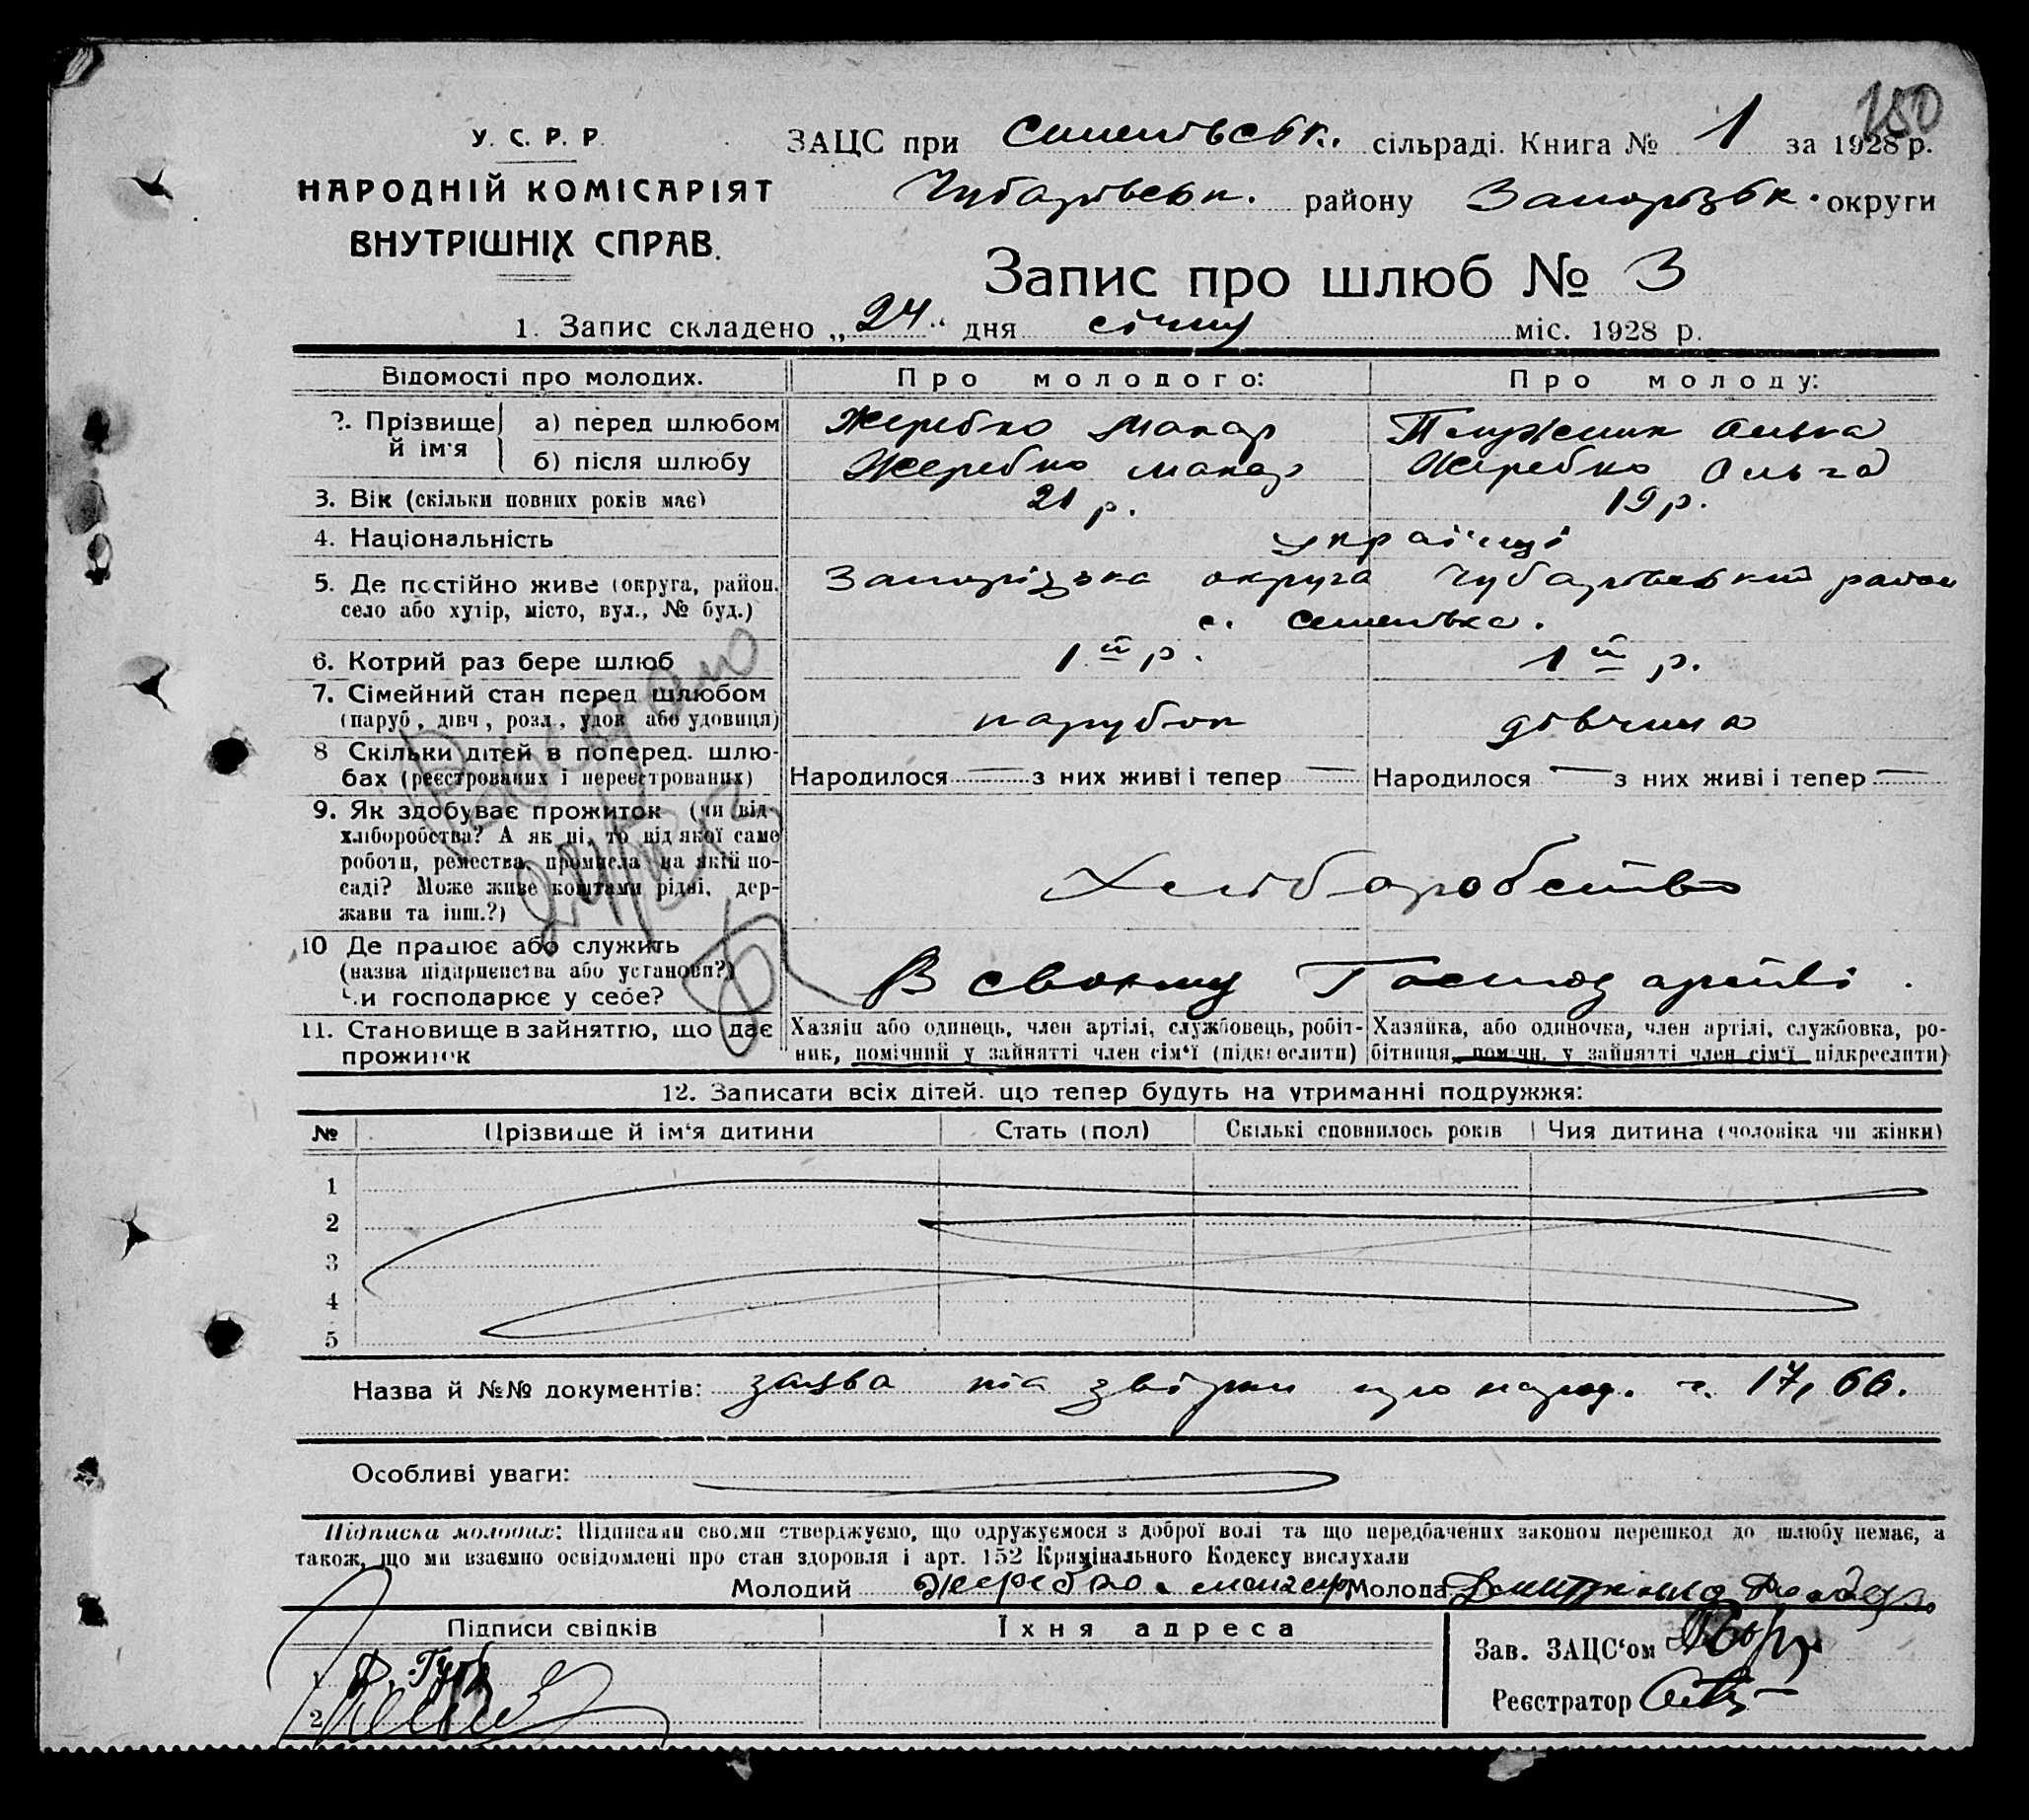 150
У. С. Р. Р.
НАРОДНІЙ КОМІСАРІЯТ
ВНУТРІШНІХ СПРАВ.
ЗАЦС при Семенівськ. сільраді. Книга № 1 за 1928 р.
Чубарівськ. району Запорізьк. округи
Запис про шлюб № 3
1. Запис складено „24“ дня січню міс. 1928 р.
Відомості про молодих. Про молодого: Про молоду:
2. Прізвище й ім'я а) перед шлюбом Жеребко Макар Ольга
б) після шлюбу Жеребко Макар Жеребко Ольга
3. Вік (скільки повних років має) 21 р. 19 р.
4. Національність українці
5. Де постійно живе (округа, район, Запорізька округа Чубарівський район
село або хутір, місто, вул., № буд.) с. Семенівка.
6. Котрий раз бере шлюб 1й р. 1й р.
7. Сімейний стан перед шлюбом
(паруб., дівч., розл., удов. або удовиця) парубок дівчина
8 Скільки дітей в поперед. шлю-
бах (реєстрованих і нереєстрованих) Народилося — з них живі і тепер — Народилося — з них живі і тепер —
9. Як здобуває прожиток (чи від
хліборобства? А як ні, то від якої саме
роботи, ремества, промисла на якій по-
саді? Може живе коштами рідні, дер-
жави та інш.?) Хліборобство
Видано
10 Де працює або служить
(назва підприємства або установи?)
Чи господарює у себе? В своєму Господарстві.
11. Становище в зайняттю, що дає
прожиток
Хазяїн або одинець, член артілі, службовець, робіт-
ник, помічний у зайнятті член сім'ї (підкреслити)
Хазяйка, або одиночка, член артілі, службовка, ро-
бітниця, помічн. у зайнятті член сім'ї підкреслити)
12. Записати всіх дітей. що тепер будуть на утриманні подружжя:
№ Прізвище й ім'я дитини Стать (пол) Скількі сповнилось років Чия дитина (чоловіка чи жінки)
1
2
3
4
5
Назва й №№ документів: заява про народ. ч. 17, 66.
Особливі уваги:
Підписка молодих: Підписами своїми стверджуємо, що одружуємося з доброї волі та що передбачених законом перешкод до шлюбу немає, а
також, що ми взаємно освідомлені про стан здоровля і арт. 152 Кримінального Кодексу вислухали
Молодий Жеребко Макар Молода
Підписи свідків Їхня адреса
Зав. ЗАЦС'ом
1
Реєстратор
2